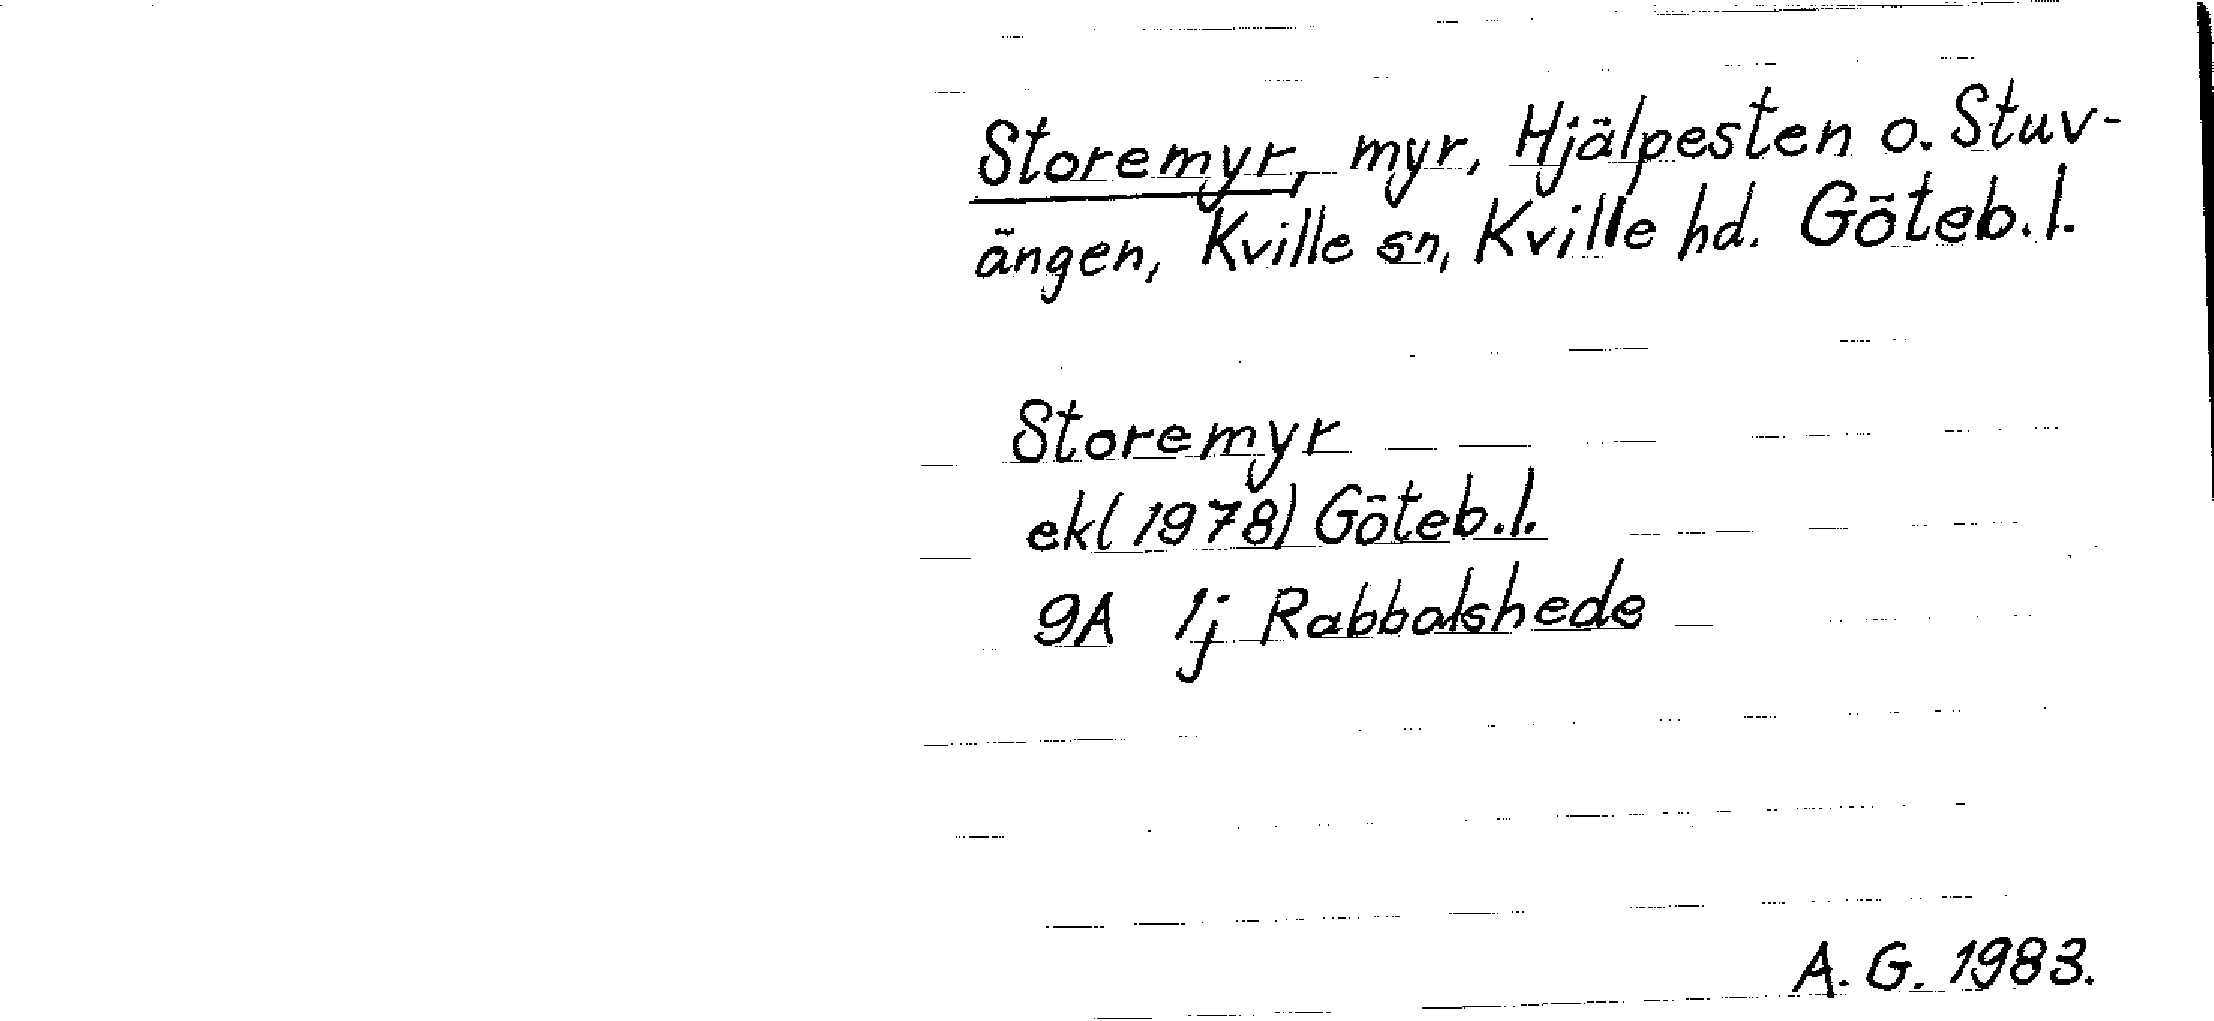 Storemyr, myr, Hjälpesten o. Stuv-
ängen, Kville sn, Kville hd. Göteb.l.
Storemyr
ekl (1978) Göteb.l.
9A 1j Rabbalshede
A. G. 1983.